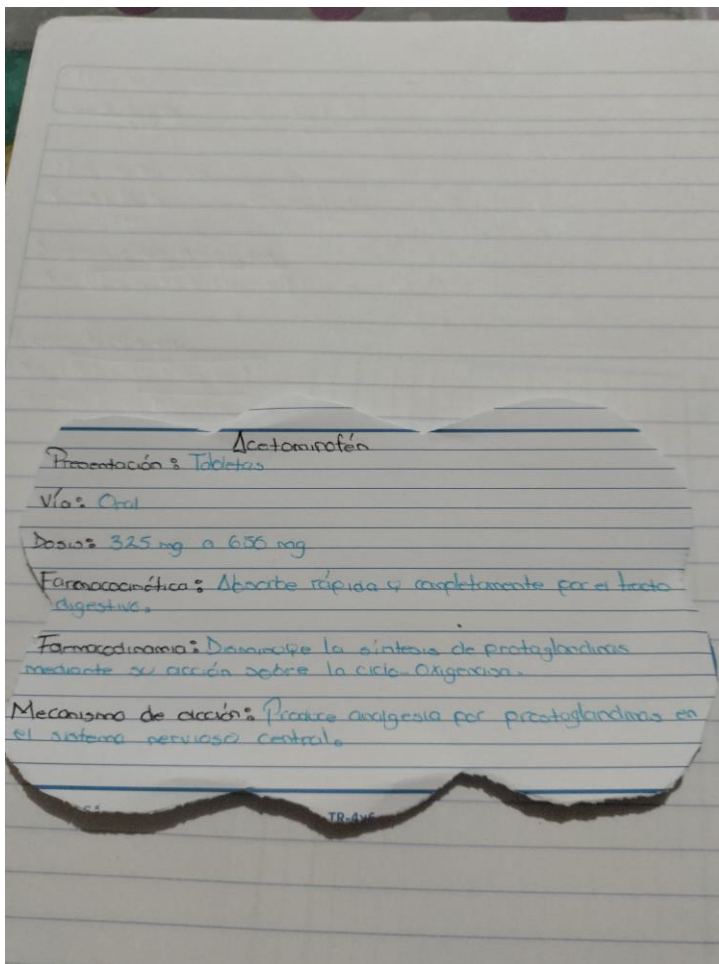 Acetaminofén
Presentación: Tabletas
Vía: Oral
Dosis: 325 mg a 650 mg
Farmacocinética: Absorbe rápida y completamente por el tracto
digestivo.
Farmacodinamia: Disminuye la síntesis de protaglandinas
mediante su acción sobre la ciclo-Oxigenasa.
Mecanismo de acción: Produce analgesia por prostaglandinas en
el sistema nervioso central.